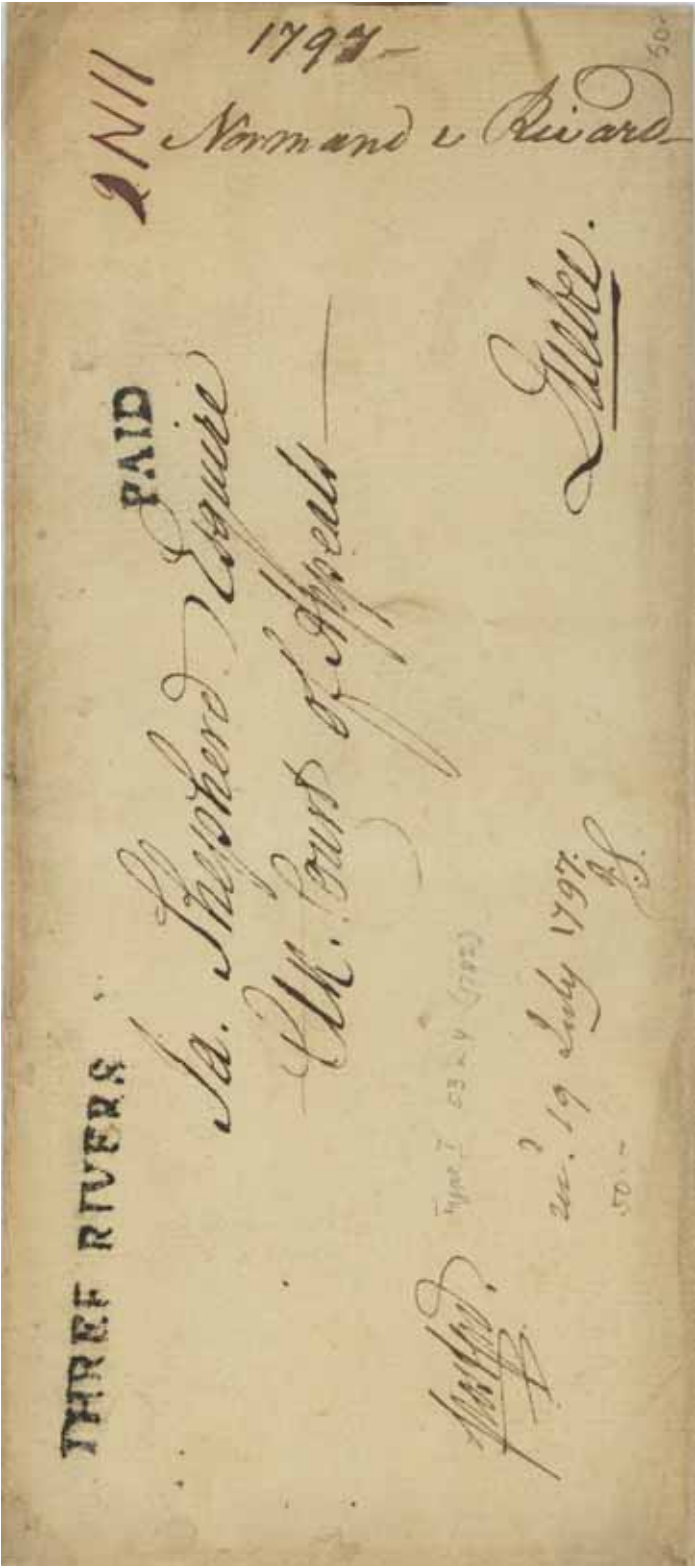 1797 –
Normand & Rivard
THREE RIVERS
PAID
2N11
Ja. Shepherd Esquire
Clk. Court of Appeals
Quebec.
Type I 53 x 4 (1782)
19 July 1797.
J.S.
50 –
50 –